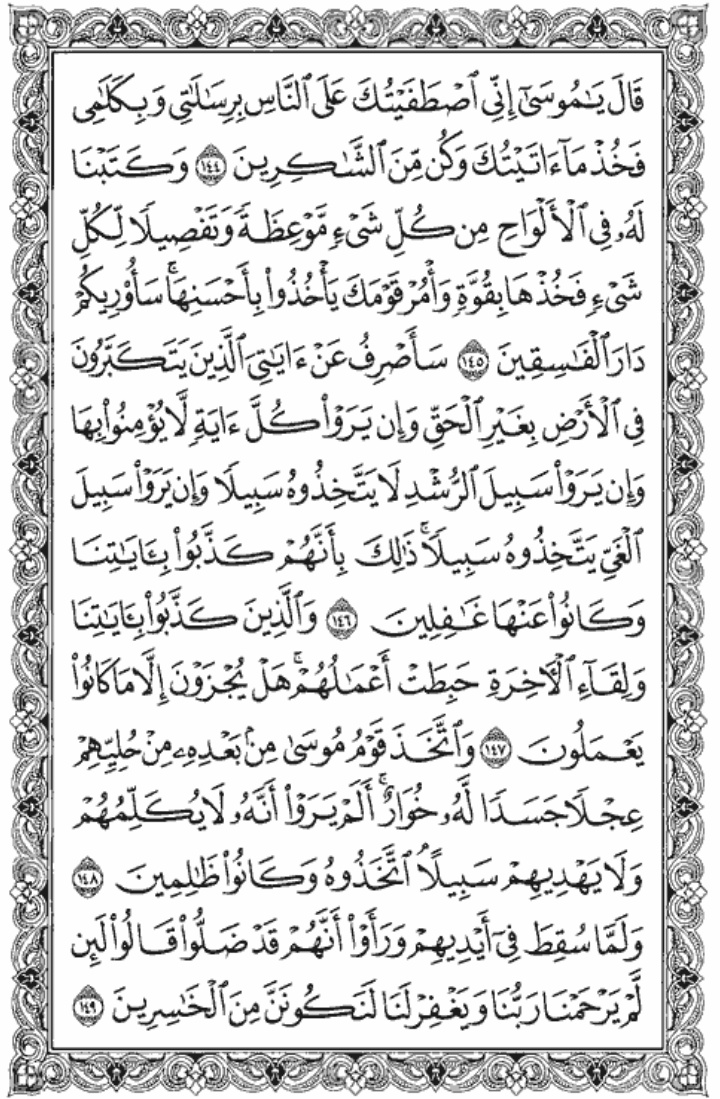 قَالَ يَٰمُوسَىٰٓ إِنِّي ٱصۡطَفَيۡتُكَ عَلَى ٱلنَّاسِ بِرِسَٰلَٰتِي وَبِكَلَٰمِي
فَخُذۡ مَآ ءَاتَيۡتُكَ وَكُن مِّنَ ٱلشَّٰكِرِينَ ١٤٤ وَكَتَبۡنَا
لَهُۥ فِي ٱلۡأَلۡوَاحِ مِن كُلِّ شَيۡءٖ مَّوۡعِظَةٗ وَتَفۡصِيلٗا لِّكُلِّ
شَيۡءٖ فَخُذۡهَا بِقُوَّةٖ وَأۡمُرۡ قَوۡمَكَ يَأۡخُذُواْ بِأَحۡسَنِهَاۚ سَأُوْرِيكُمۡ
دَارَ ٱلۡفَٰسِقِينَ ١٤٥ سَأَصۡرِفُ عَنۡ ءَايَٰتِيَ ٱلَّذِينَ يَتَكَبَّرُونَ
فِي ٱلۡأَرۡضِ بِغَيۡرِ ٱلۡحَقِّ وَإِن يَرَوۡاْ كُلَّ ءَايَةٖ لَّا يُؤۡمِنُواْ بِهَا
وَإِن يَرَوۡاْ سَبِيلَ ٱلرُّشۡدِ لَا يَتَّخِذُوهُ سَبِيلٗا وَإِن يَرَوۡاْ سَبِيلَ
ٱلۡغَيِّ يَتَّخِذُوهُ سَبِيلٗاۚ ذَٰلِكَ بِأَنَّهُمۡ كَذَّبُواْ بِـَٔايَٰتِنَا
وَكَانُواْ عَنۡهَا غَٰفِلِينَ ١٤٦ وَٱلَّذِينَ كَذَّبُواْ بِـَٔايَٰتِنَا
وَلِقَآءِ ٱلۡأٓخِرَةِ حَبِطَتۡ أَعۡمَٰلُهُمۡۚ هَلۡ يُجۡزَوۡنَ إِلَّا مَا كَانُواْ
يَعۡمَلُونَ ١٤٧ وَٱتَّخَذَ قَوۡمُ مُوسَىٰ مِنۢ بَعۡدِهِۦ مِنۡ حُلِيِّهِمۡ
عِجۡلٗا جَسَدٗا لَّهُۥ خُوَارٌۚ أَلَمۡ يَرَوۡاْ أَنَّهُۥ لَا يُكَلِّمُهُمۡ
وَلَا يَهۡدِيهِمۡ سَبِيلًاۘ ٱتَّخَذُوهُ وَكَانُواْ ظَٰلِمِينَ ١٤٨
وَلَمَّا سُقِطَ فِيٓ أَيۡدِيهِمۡ وَرَأَوۡاْ أَنَّهُمۡ قَدۡ ضَلُّواْ قَالُواْ لَئِن
لَّمۡ يَرۡحَمۡنَا رَبُّنَا وَيَغۡفِرۡ لَنَا لَنَكُونَنَّ مِنَ ٱلۡخَٰسِرِينَ ١٤٩